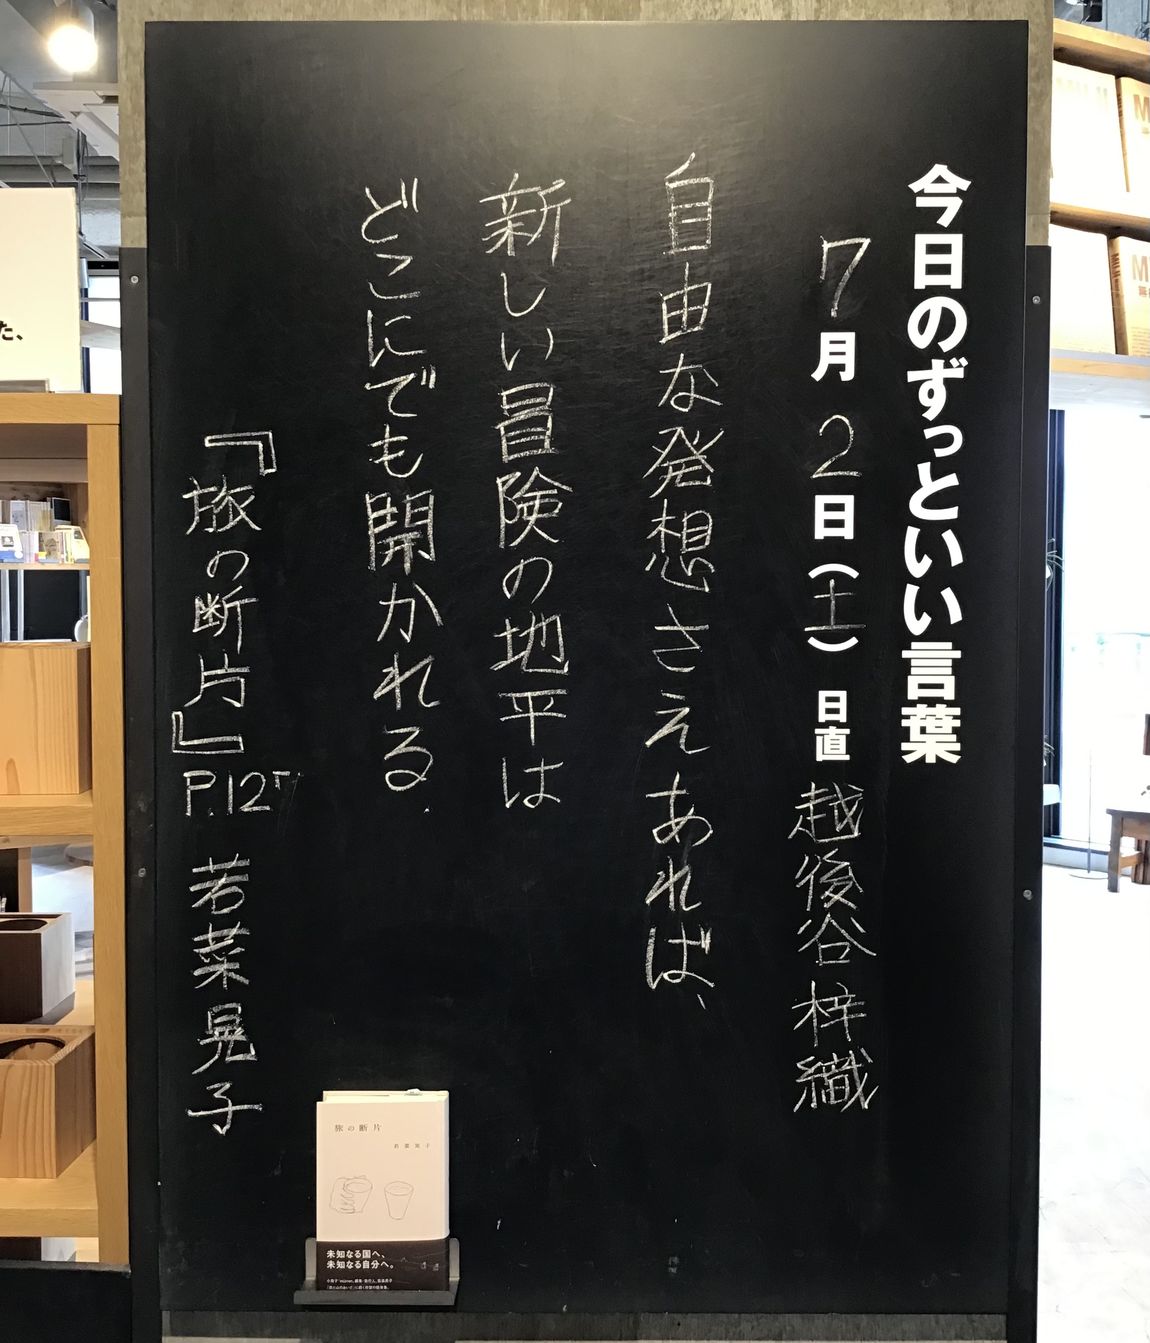 今日のずっといい言葉
7月2日(土) 日直 越後谷 梓織
自由な発想さえあれば、
新しい冒険の地平は
どこにでも開かれる.
『旅の断片』P.127 若菜晃子
旅の断片
若菜晃子
未知なる国へ、
未知なる自分へ。
た、